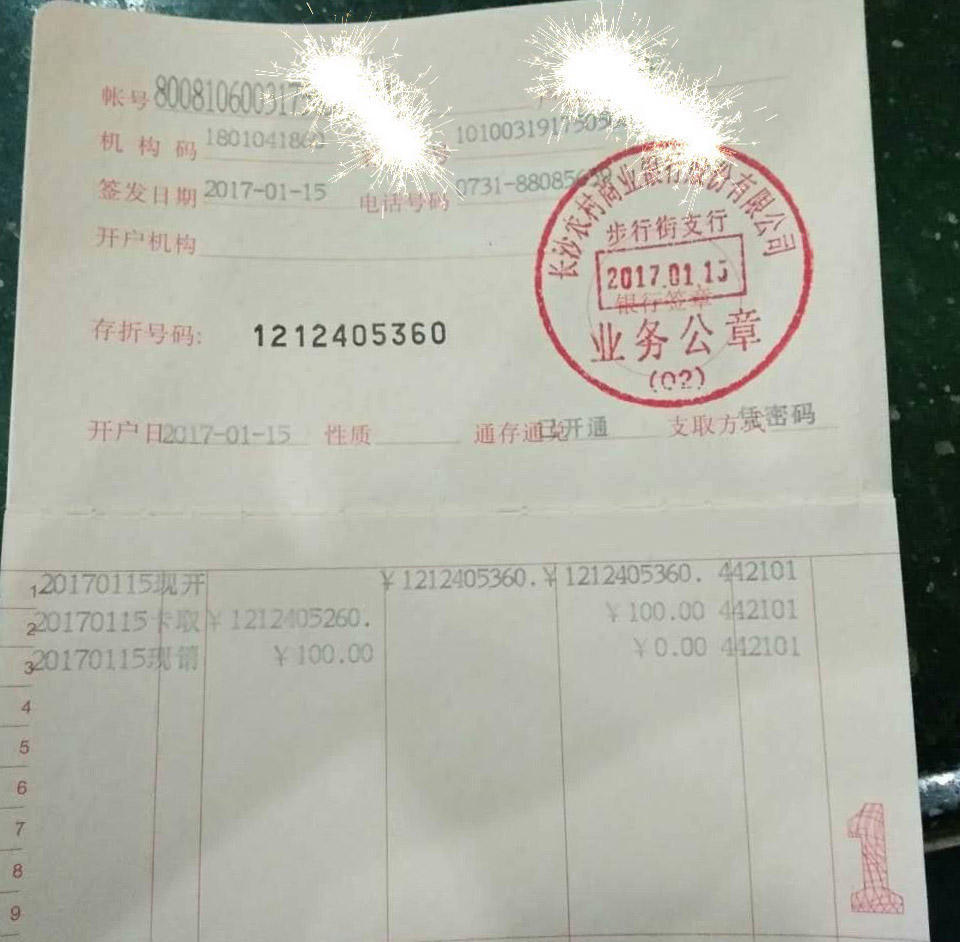 帐号 80081060031
机构码 1801041860 10100319175050
签发日期 2017-01-15 电话号码 0731-88085
开户机构
长沙农村商业银行股份有限公司
步行街支行
2017.01.15
银行签章
业务公章
(02)
存折号码: 1212405360
开户日 2017-01-15 性质 通存通兑 已开通 支取方式 凭密码
1 20170115 现开 ¥1212405360. ¥1212405360. 442101
2 20170115 卡取 ¥1212405260. ¥100.00 442101
3 20170115 现销 ¥100.00 ¥0.00 442101
4
5
6
7
8
9
1